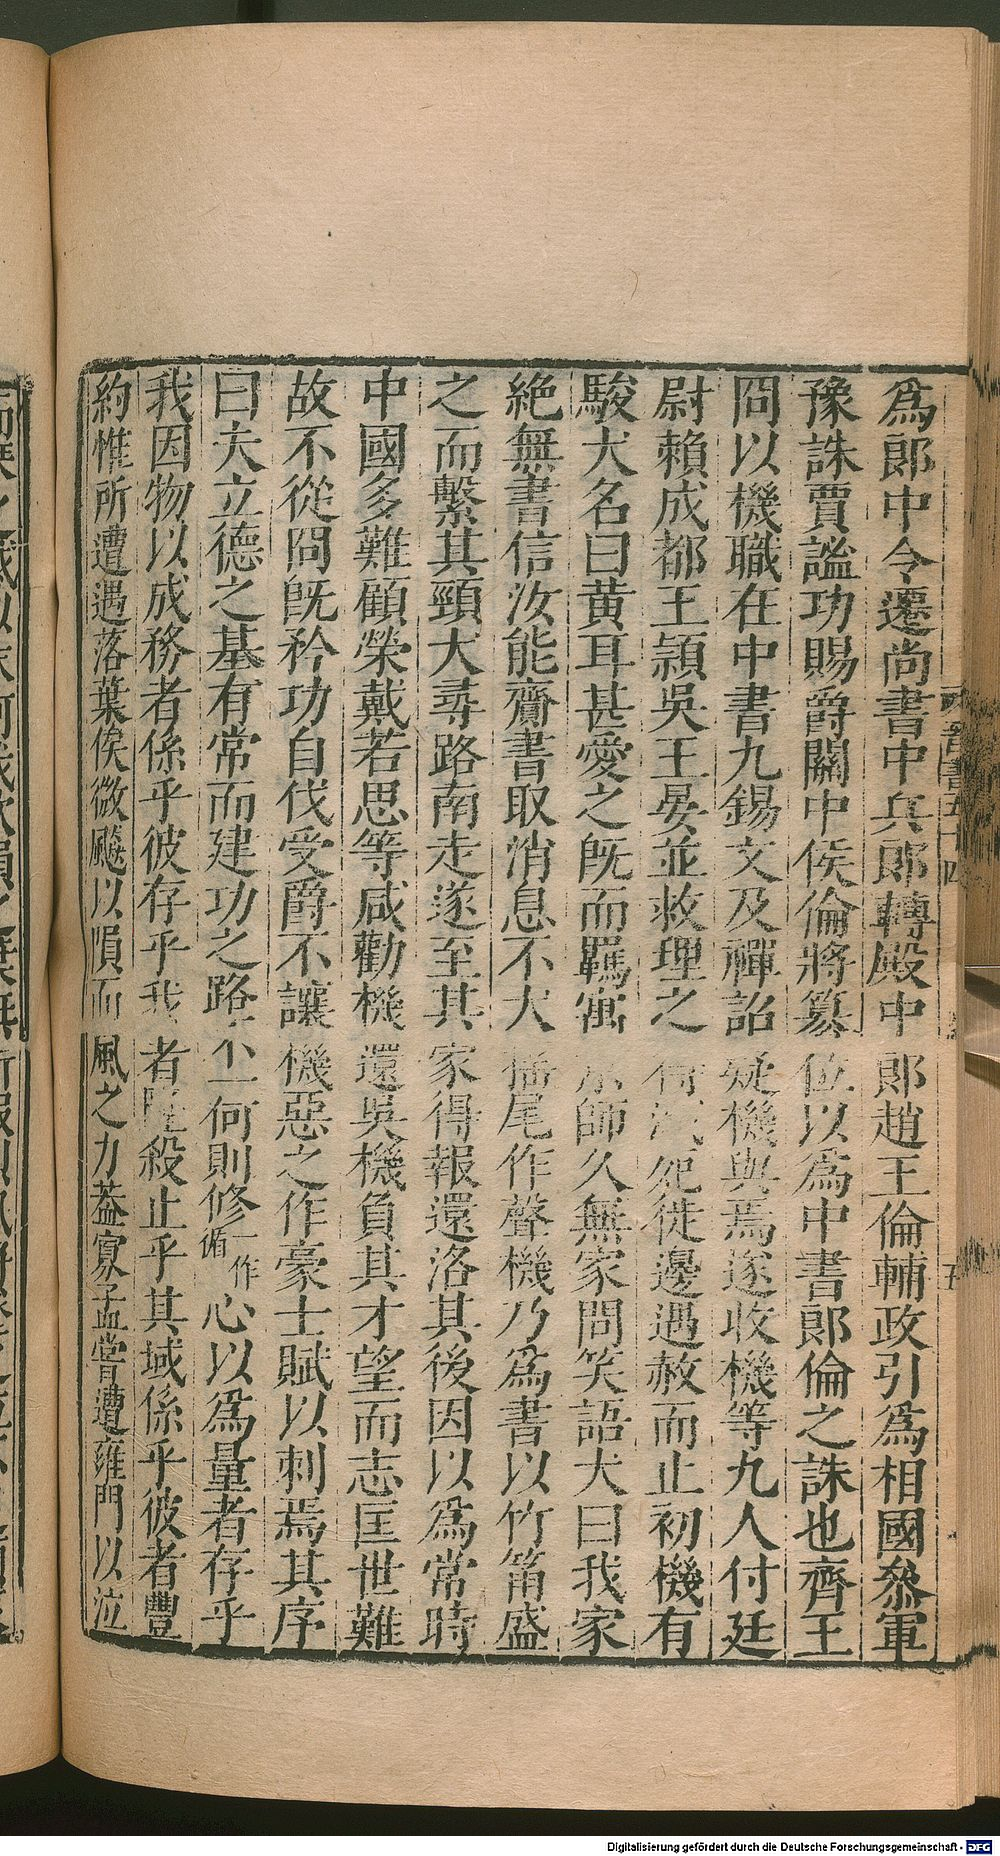 爲郎中令遷尚書中兵郎轉殿中郎趙王倫輔政引爲相國叅軍
豫誅賈謐功賜爵關中侯倫將簒位以爲中書郎倫之誅也齊王
冏以機職在中書九錫文及禪詔疑機與焉遂收機等九人付廷
尉賴成都王穎吳王晏並救理之得減死徒邊遇赦而止初機有
駿犬名曰黃耳甚愛之旣而羈寓京師久無家問笑語犬曰我家
絶無書信汝能齎書取消息不犬搖尾作聲機乃爲書以竹筩盛
之而繫其頸犬尋路南走遂至其家得報還洛其後因以爲常時
中國多難顧榮戴若思等咸勸機還吳機負其才望而志匡世難
故不從冏旣矜功自伐受爵不讓機惡之作豪士賦以刺焉其序
曰夫立德之基有常而建功之路不一何則修一作循心以爲量者存乎
我因物以成務者係乎彼存乎我者隆殺止乎其域係乎彼者豐
約惟所遭遇落葉俟微飈以隕而風之力葢寡孟嘗遭雍門以泣
晉書五十四
五
Digitalisierung gefördert durch die Deutsche Forschungsgemeinschaft - DFG